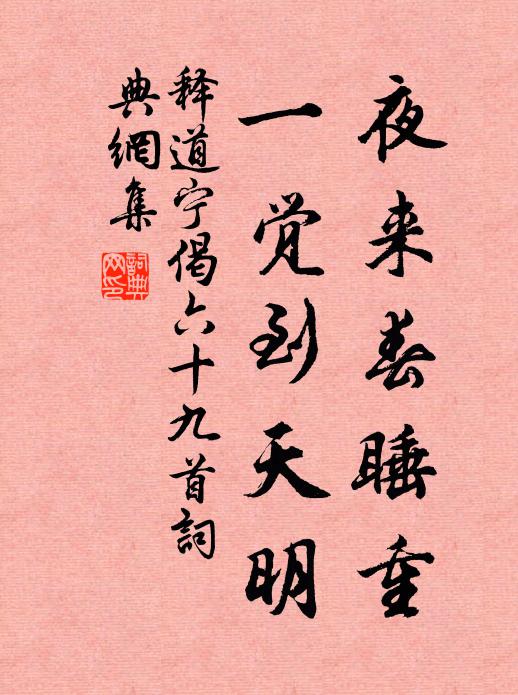 夜来春睡重
一觉到天明
释道宁偈六十九首詞
典網集
詞典
网印